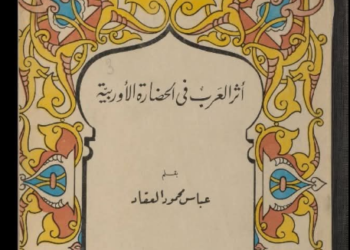 أثر العرب في الحضارة الأوربية
بقلم
عباس محمود العقاد